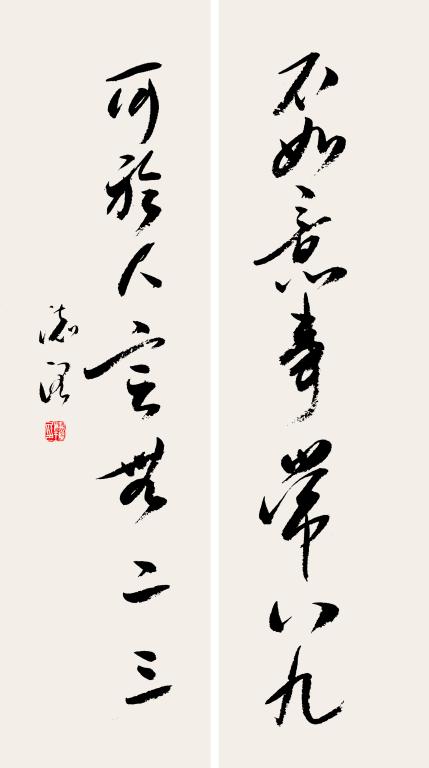 不如意事常八九
可於人言無二三